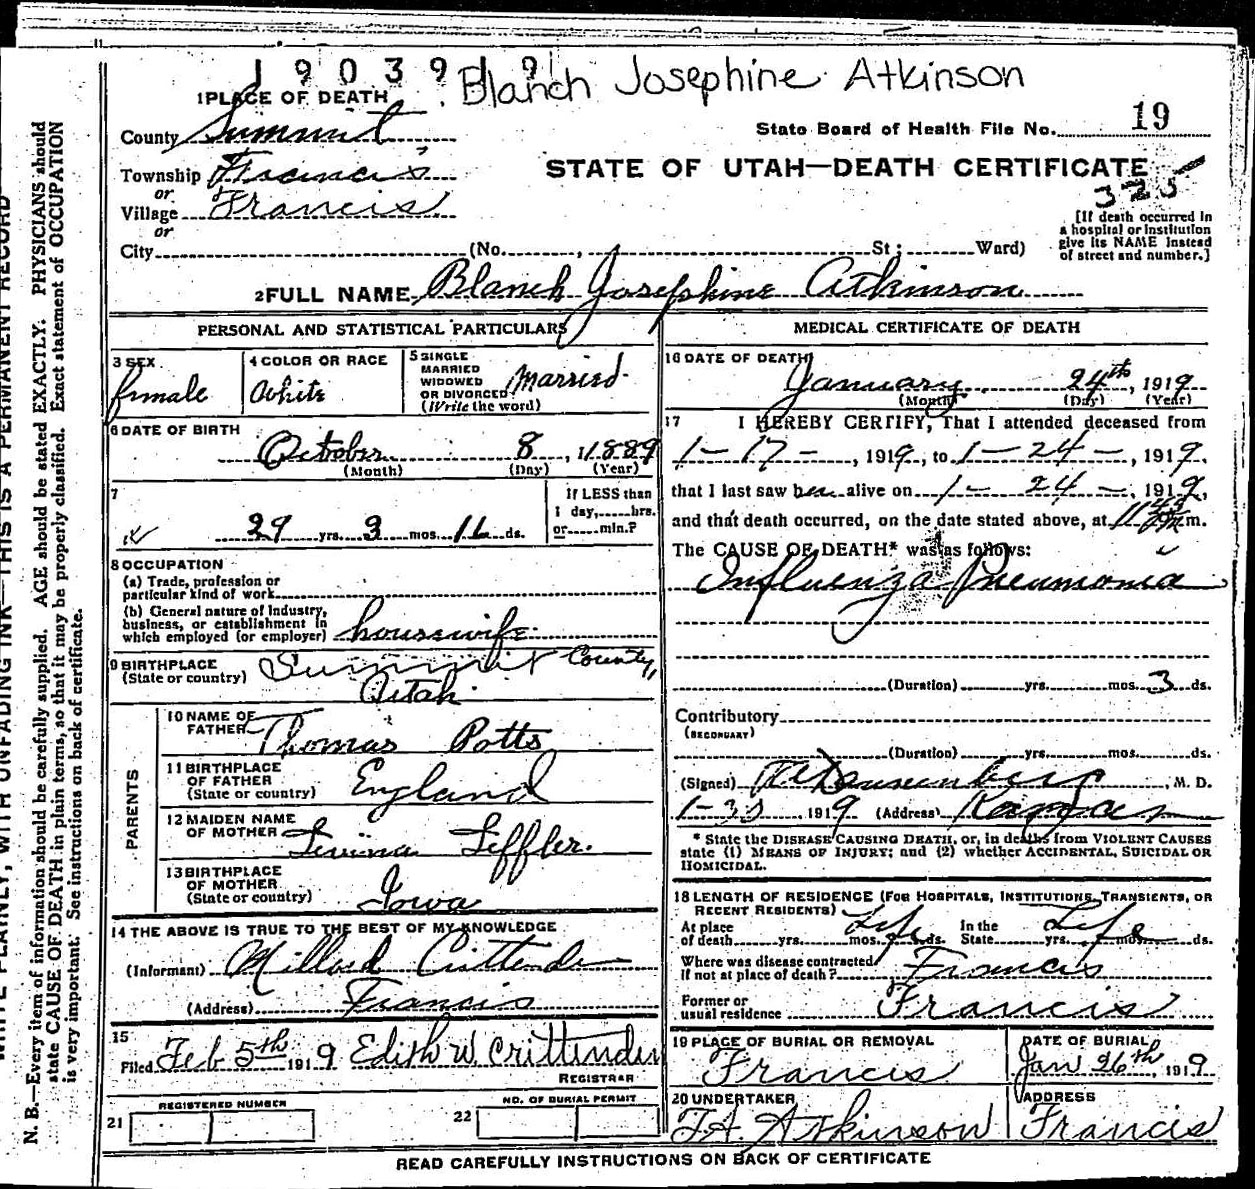 1903919 Blanch Josephine Atkinson
1 PLACE OF DEATH
County Summit
State Board of Health File No. 19
Township Francis
STATE OF UTAH—DEATH CERTIFICATE
325
or
Village Francis
or
City (No. , St; Ward)
[If death occurred in
a hospital or institution
give its NAME instead
of street and number.]
2 FULL NAME Blanch Josephine Atkinson
PERSONAL AND STATISTICAL PARTICULARS
3 SEX
female
4 COLOR OR RACE
White
5 SINGLE
MARRIED
WIDOWED
OR DIVORCED
(Write the word)
Married
6 DATE OF BIRTH
October 8, 1889
(Month) (Day) (Year)
7
29 yrs. 3 mos. 16 ds.
If LESS than
1 day, hrs.
or min.?
8 OCCUPATION
(a) Trade, profession or
particular kind of work
(b) General nature of Industry,
business, or establishment in
which employed (or employer) housewife
9 BIRTHPLACE
(State or country)
Summit County,
Utah
PARENTS
10 NAME OF
FATHER
Thomas Potts
11 BIRTHPLACE
OF FATHER
(State or country)
England
12 MAIDEN NAME
OF MOTHER
Leffler.
13 BIRTHPLACE
OF MOTHER
(State or country)
Iowa
14 THE ABOVE IS TRUE TO THE BEST OF MY KNOWLEDGE
(Informant) Millard Crittenden
(Address) Francis
15
Filed Feb 5th 1919 Edith W. Crittenden
REGISTRAR
21
REGISTERED NUMBER
22
NO. OF BURIAL PERMIT
MEDICAL CERTIFICATE OF DEATH
16 DATE OF DEATH
January 24th, 1919
(Month) (Day) (Year)
17 I HEREBY CERTIFY, That I attended deceased from
1-17-, 1919, to 1-24-, 1919,
that I last saw her alive on 1-24-, 1919,
and that death occurred, on the date stated above, at m.
The CAUSE OF DEATH* was as follows:
Influenza Pneumonia
(Duration) yrs. mos. 3 ds.
Contributory
(SECONDARY)
(Duration) yrs. mos. ds.
(Signed) , M. D.
1-30 1919 (Address) Kamas
* State the DISEASE CAUSING DEATH, or, in deaths from VIOLENT CAUSES
state (1) MEANS OF INJURY; and (2) whether ACCIDENTAL, SUICIDAL OR
HOMICIDAL.
18 LENGTH OF RESIDENCE (FOR HOSPITALS, INSTITUTIONS, TRANSIENTS, OR
RECENT RESIDENTS)
At place
of death yrs. mos. ds. Life
In the
State yrs. mos. ds. Life
Where was disease contracted
if not at place of death? Francis
Former or
usual residence Francis
19 PLACE OF BURIAL OR REMOVAL
Francis
DATE OF BURIAL
Jan 26th, 1919
20 UNDERTAKER
F.A. Atkinson
ADDRESS
Francis
READ CAREFULLY INSTRUCTIONS ON BACK OF CERTIFICATE
WRITE PLAINLY, WITH UNFADING INK—THIS IS A PERMANENT RECORD
N. B.—Every item of information should be carefully supplied. AGE should be stated EXACTLY. PHYSICIANS should
state CAUSE OF DEATH in plain terms, so that it may be properly classified. Exact statement of OCCUPATION
is very important. See instructions on back of certificate.